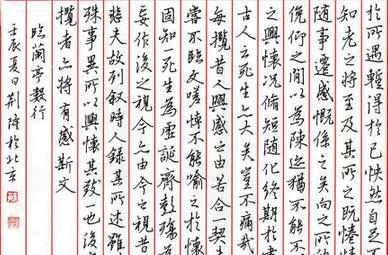 於所遇輒得於己怏然自足不
知老之將至及其所之既惓情
隨事遷感慨係之矣向之所
俛仰之間以為陳迹猶不能不
之興懷況脩短隨化終期於
古人云死生亦大矣豈不痛哉
每攬昔人興感之由若合一契
嘗不臨文嗟悼不能喻之於懷
固知一死生為虛誕齊彭殤
妄作後之視今亦由今之視昔
悲夫故列敘時人錄其所述雖
殊事異所以興懷其致一也後
攬者亦將有感斯文
臨蘭亭數行
壬辰夏日荆於北京